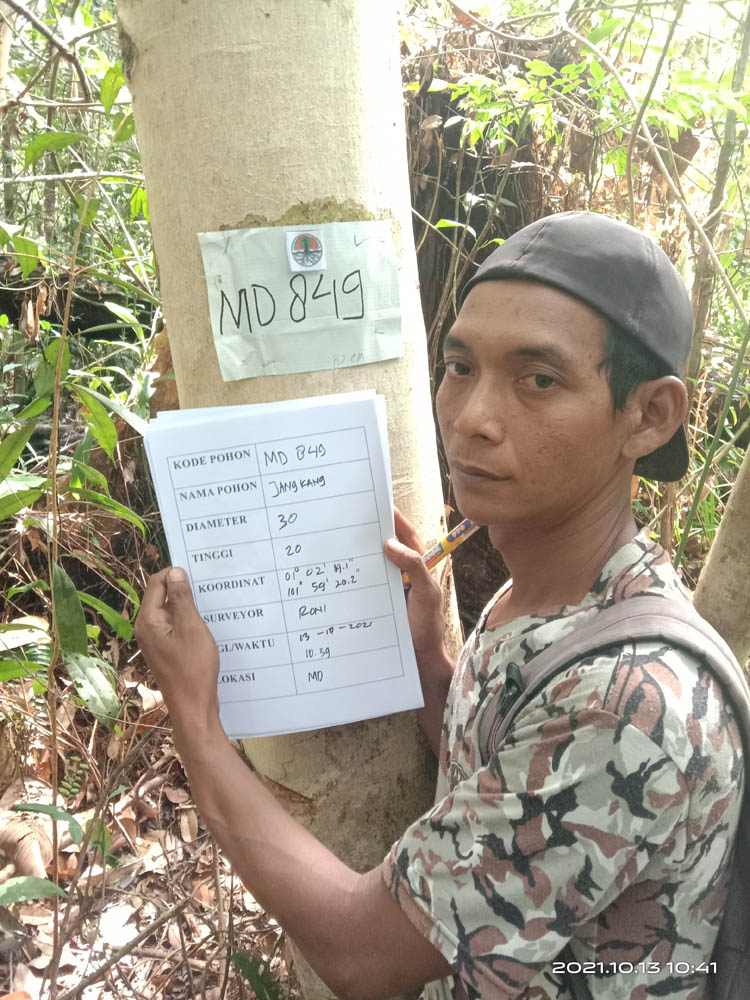 MD 849
KODE POHON MD 849
NAMA POHON JANGKANG
DIAMETER 30
TINGGI 20
KOORDINAT 01° 02' 19.1"
101° 59' 20.2"
SURVEYOR RONI
GL/WAKTU 13-10-2021
10.39
LOKASI MD
2021.10.13 10:41